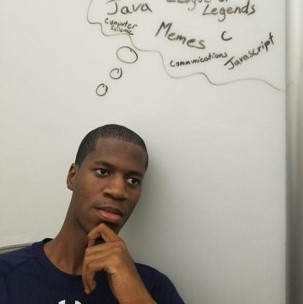 Java
League of
Legends
Computer
Science
Memes
C
Communications
JavaScript